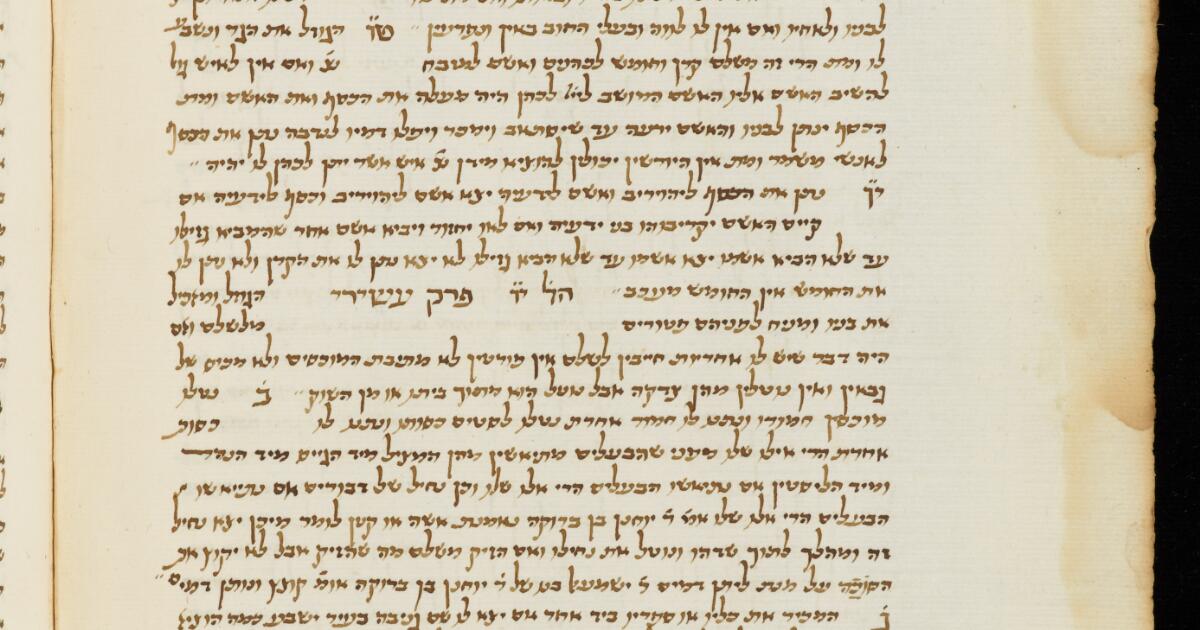 לבניו ולאחיו ואם אין לו לווה ובעלי החוב באין ונפרעין ט״ו הגוזל את הגר ונשבע
לו ומת הרי זה משלם קרן וחומש לכהנים ואשם למזבח שנ׳ ואם אין לאיש גואל
להשיב האשם אליו האשם המושב לייי לכהן היה מעלה את הכסף ואת האשם ומת
הכסף ינתן לבניו והאשם ירעה עד שיסתאב וימכר ויפלו דמיו לנדבה נתן את הכסף
לאנשי משמר ומת אין היורשין יכולין להוציא מידן שנ׳ איש אשר יתן לכהן לו יהיה
י״ו נתן את הכסף ליהויריב ואשם לידעיה יצא אשם ליהויריב וכסף לידעיה אם
קיים האשם יקריבוהו בני ידעיה ואם לאו יחזור ויביא אשם אחר שהמביא גזילו
עד שלא הביא אשמו יצא אשמו עד שלא הביא גזילו לא יצא נתן לו את הקרן ולא נתן לו
את החומש אין החומש מעכב הל׳ י״ו פרק עשירי הגוזל ומאכיל
את בניו ומניח לפניהם פטורים מלשלם ואם
היה דבר שיש לו אחריות חייבין לשלם אין פורטין לא מתיבת המוכסים ולא מכיס של
גבאין ואין נוטלין מהן צדקה אבל נוטל הוא מתוך ביתו או מן השוק ב׳ נטלו
מוכסין חמורו ונתנו לו חמור אחרת נטלו לסטים כסותו ונתנו לו כסות
אחרת הרי אילו שלו מפני שהבעלים מתיאשין מהן המציל מיד הגייס מיד הנהר
ומיד הליסטין אם נתיאשו הבעלים הרי אלו שלו וכן נחיל של דבורים אם נתיאשו
הבעלים הרי אלו שלו אמ׳ ר׳ יוחנן בן ברוקה נאמנת אשה או קטן לומר מיכן יצא נחיל
זה ומהלך לתוך שדהו ונוטל את נחילו ואם הזיק משלם מה שהזיק אבל לא יקוץ את
הסוכה על מנת ליתן דמים ר׳ ישמעאל בנו של ר׳ יוחנן בן ברוקה אומ׳ קוצץ ונותן דמים
ג׳ המכיר את כליו או ספריו ביד אחר אם יצא לו שם גניבה בעיר ישבע כמה הוציא